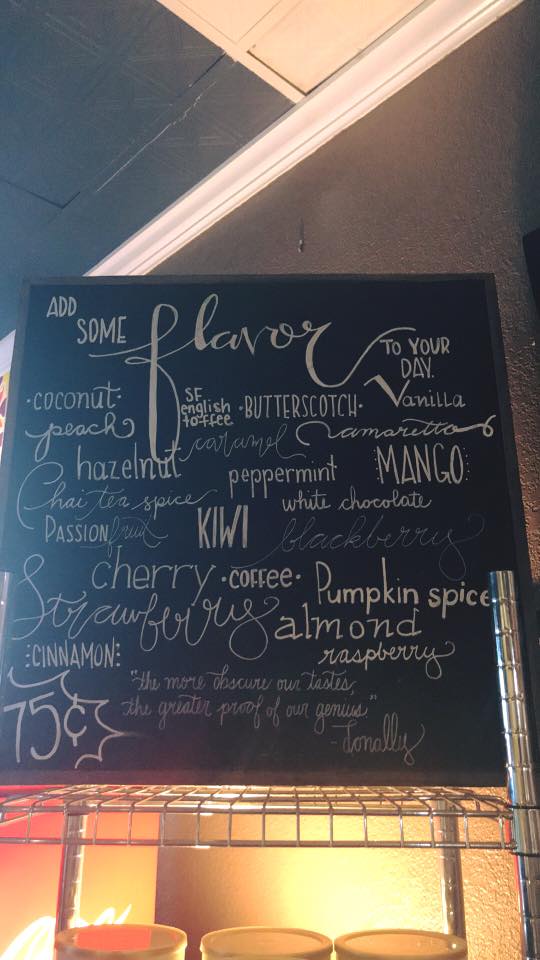 ADD
SOME flavor
TO YOUR
DAY.
·coconut·
SF
english
toffee
·BUTTERSCOTCH·
Vanilla
peach
caramel
amaretto
hazelnut
peppermint
MANGO
Chai tea spice
white chocolate
PASSION fruit
KIWI
blackberry
cherry
·COFFEE·
Pumpkin spice
Strawberry
almond
CINNAMON
raspberry
75¢
"the more obscure our tastes,
the greater proof of our genius."
- Donally